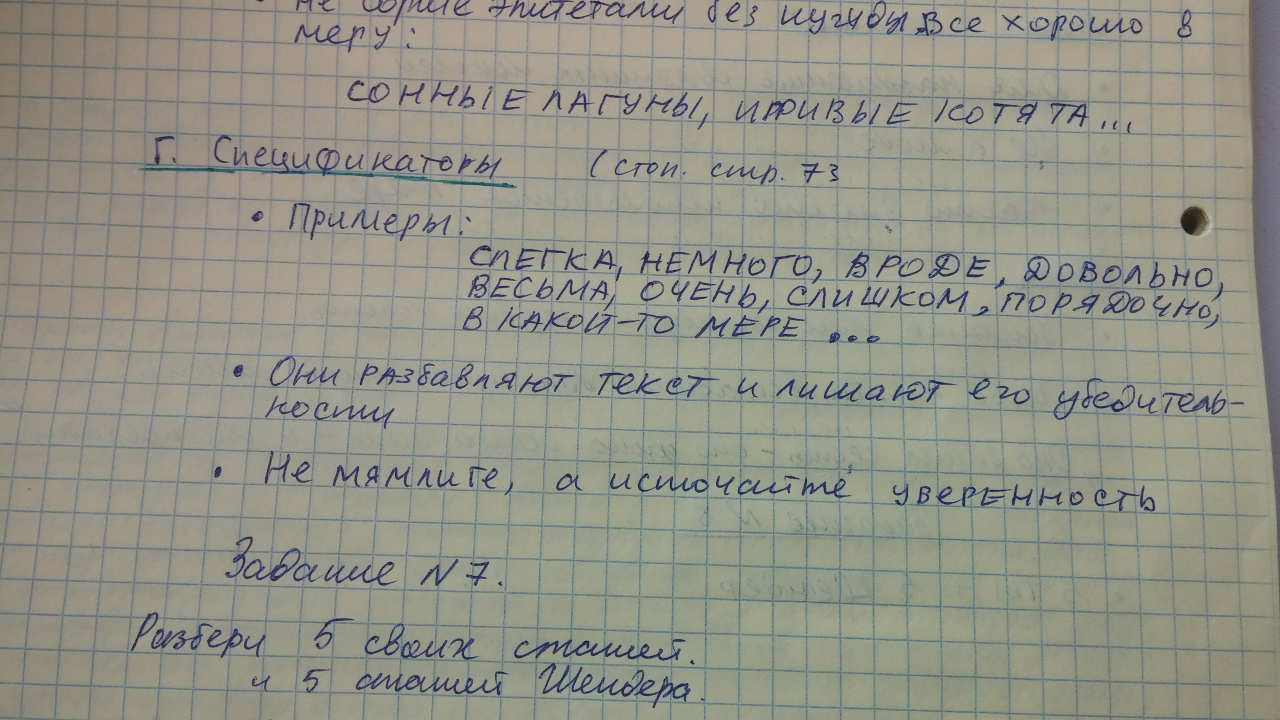 Не сорите эпитетами без нужды. Все хорошо в
меру:
СОННЫЕ ЛАГУНЫ, ИГРИВЫЕ КОТЯТА...
Г. Спецификаторы (стоп. стр. 73
• Примеры:
СЛЕГКА, НЕМНОГО, ВРОДЕ, ДОВОЛЬНО,
ВЕСЬМА, ОЧЕНЬ, СЛИШКОМ, ПОРЯДОЧНО,
В КАКОЙ-ТО МЕРЕ ...
• Они разбавляют текст и лишают его убедитель-
ности
• Не мямлите, а источайте уверенность
Задание N 7.
Разбери 5 своих статей.
и 5 статей